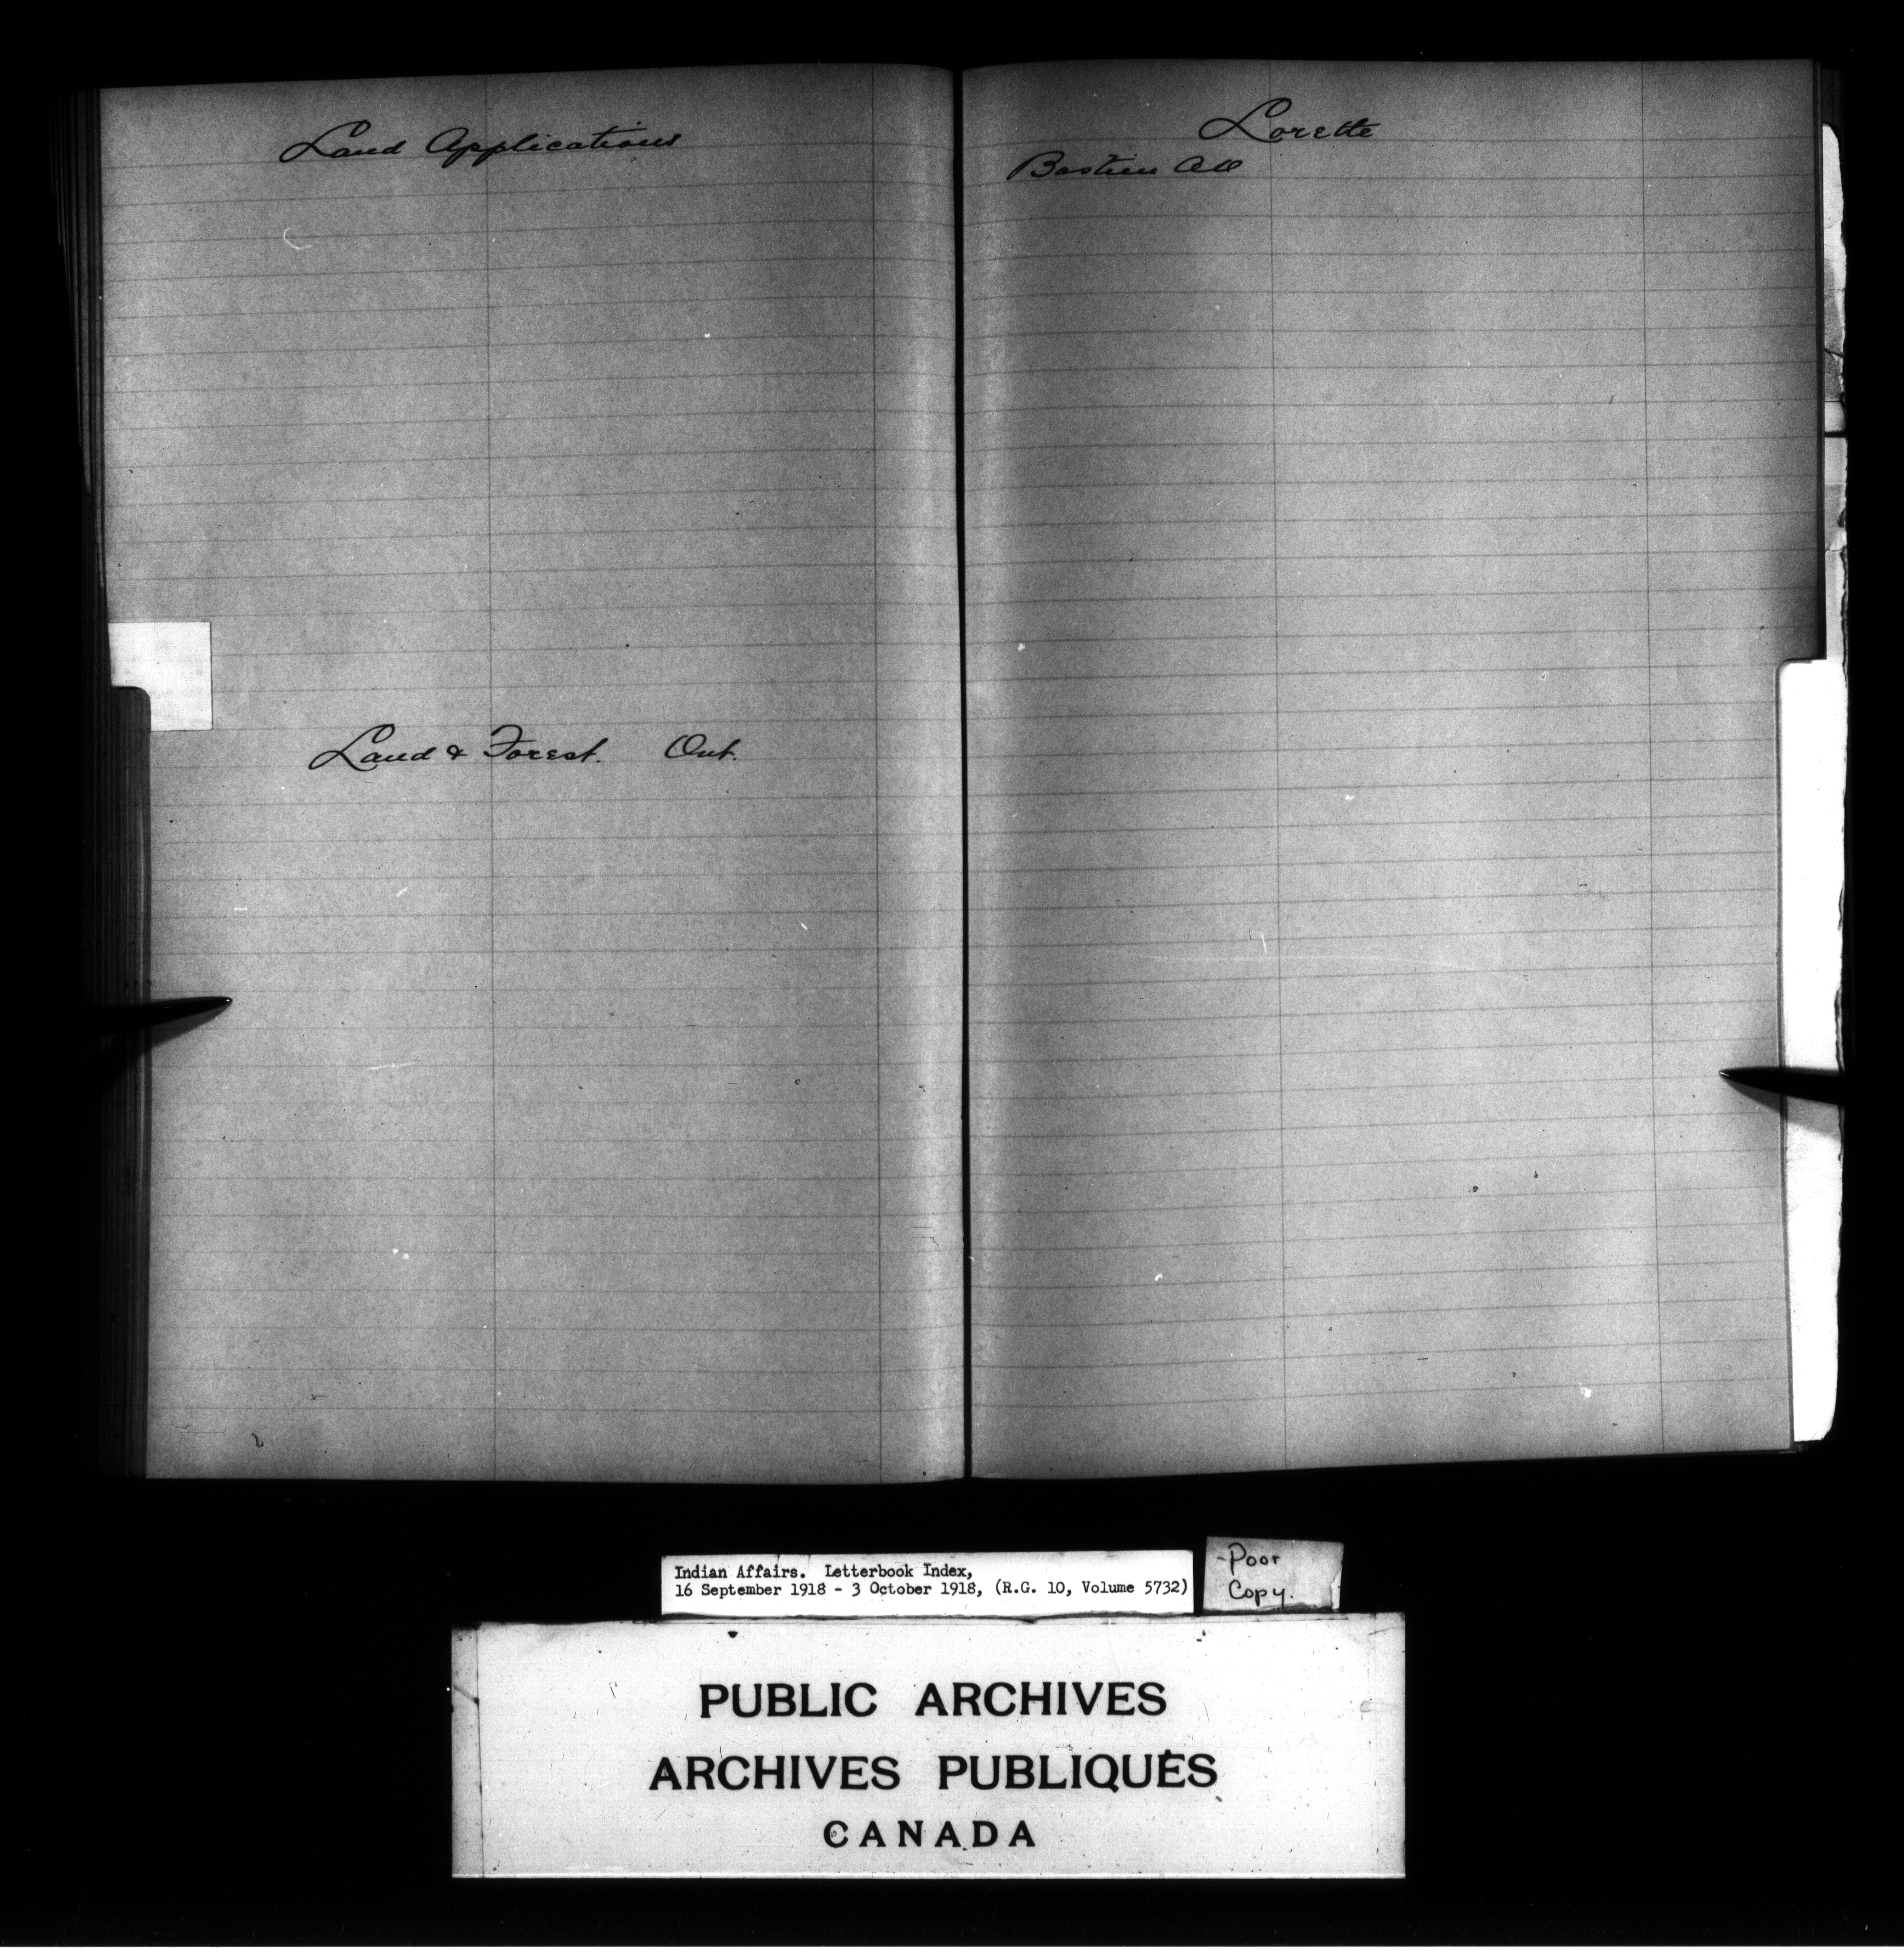 Land Applications
Land & Forest. Ont.
Lorette
Bastien
Indian Affairs. Letterbook Index,
16 September 1918 - 3 October 1918, (R.G. 10, Volume 5732)
-Poor
Copy.
PUBLIC ARCHIVES
ARCHIVES PUBLIQUES
CANADA